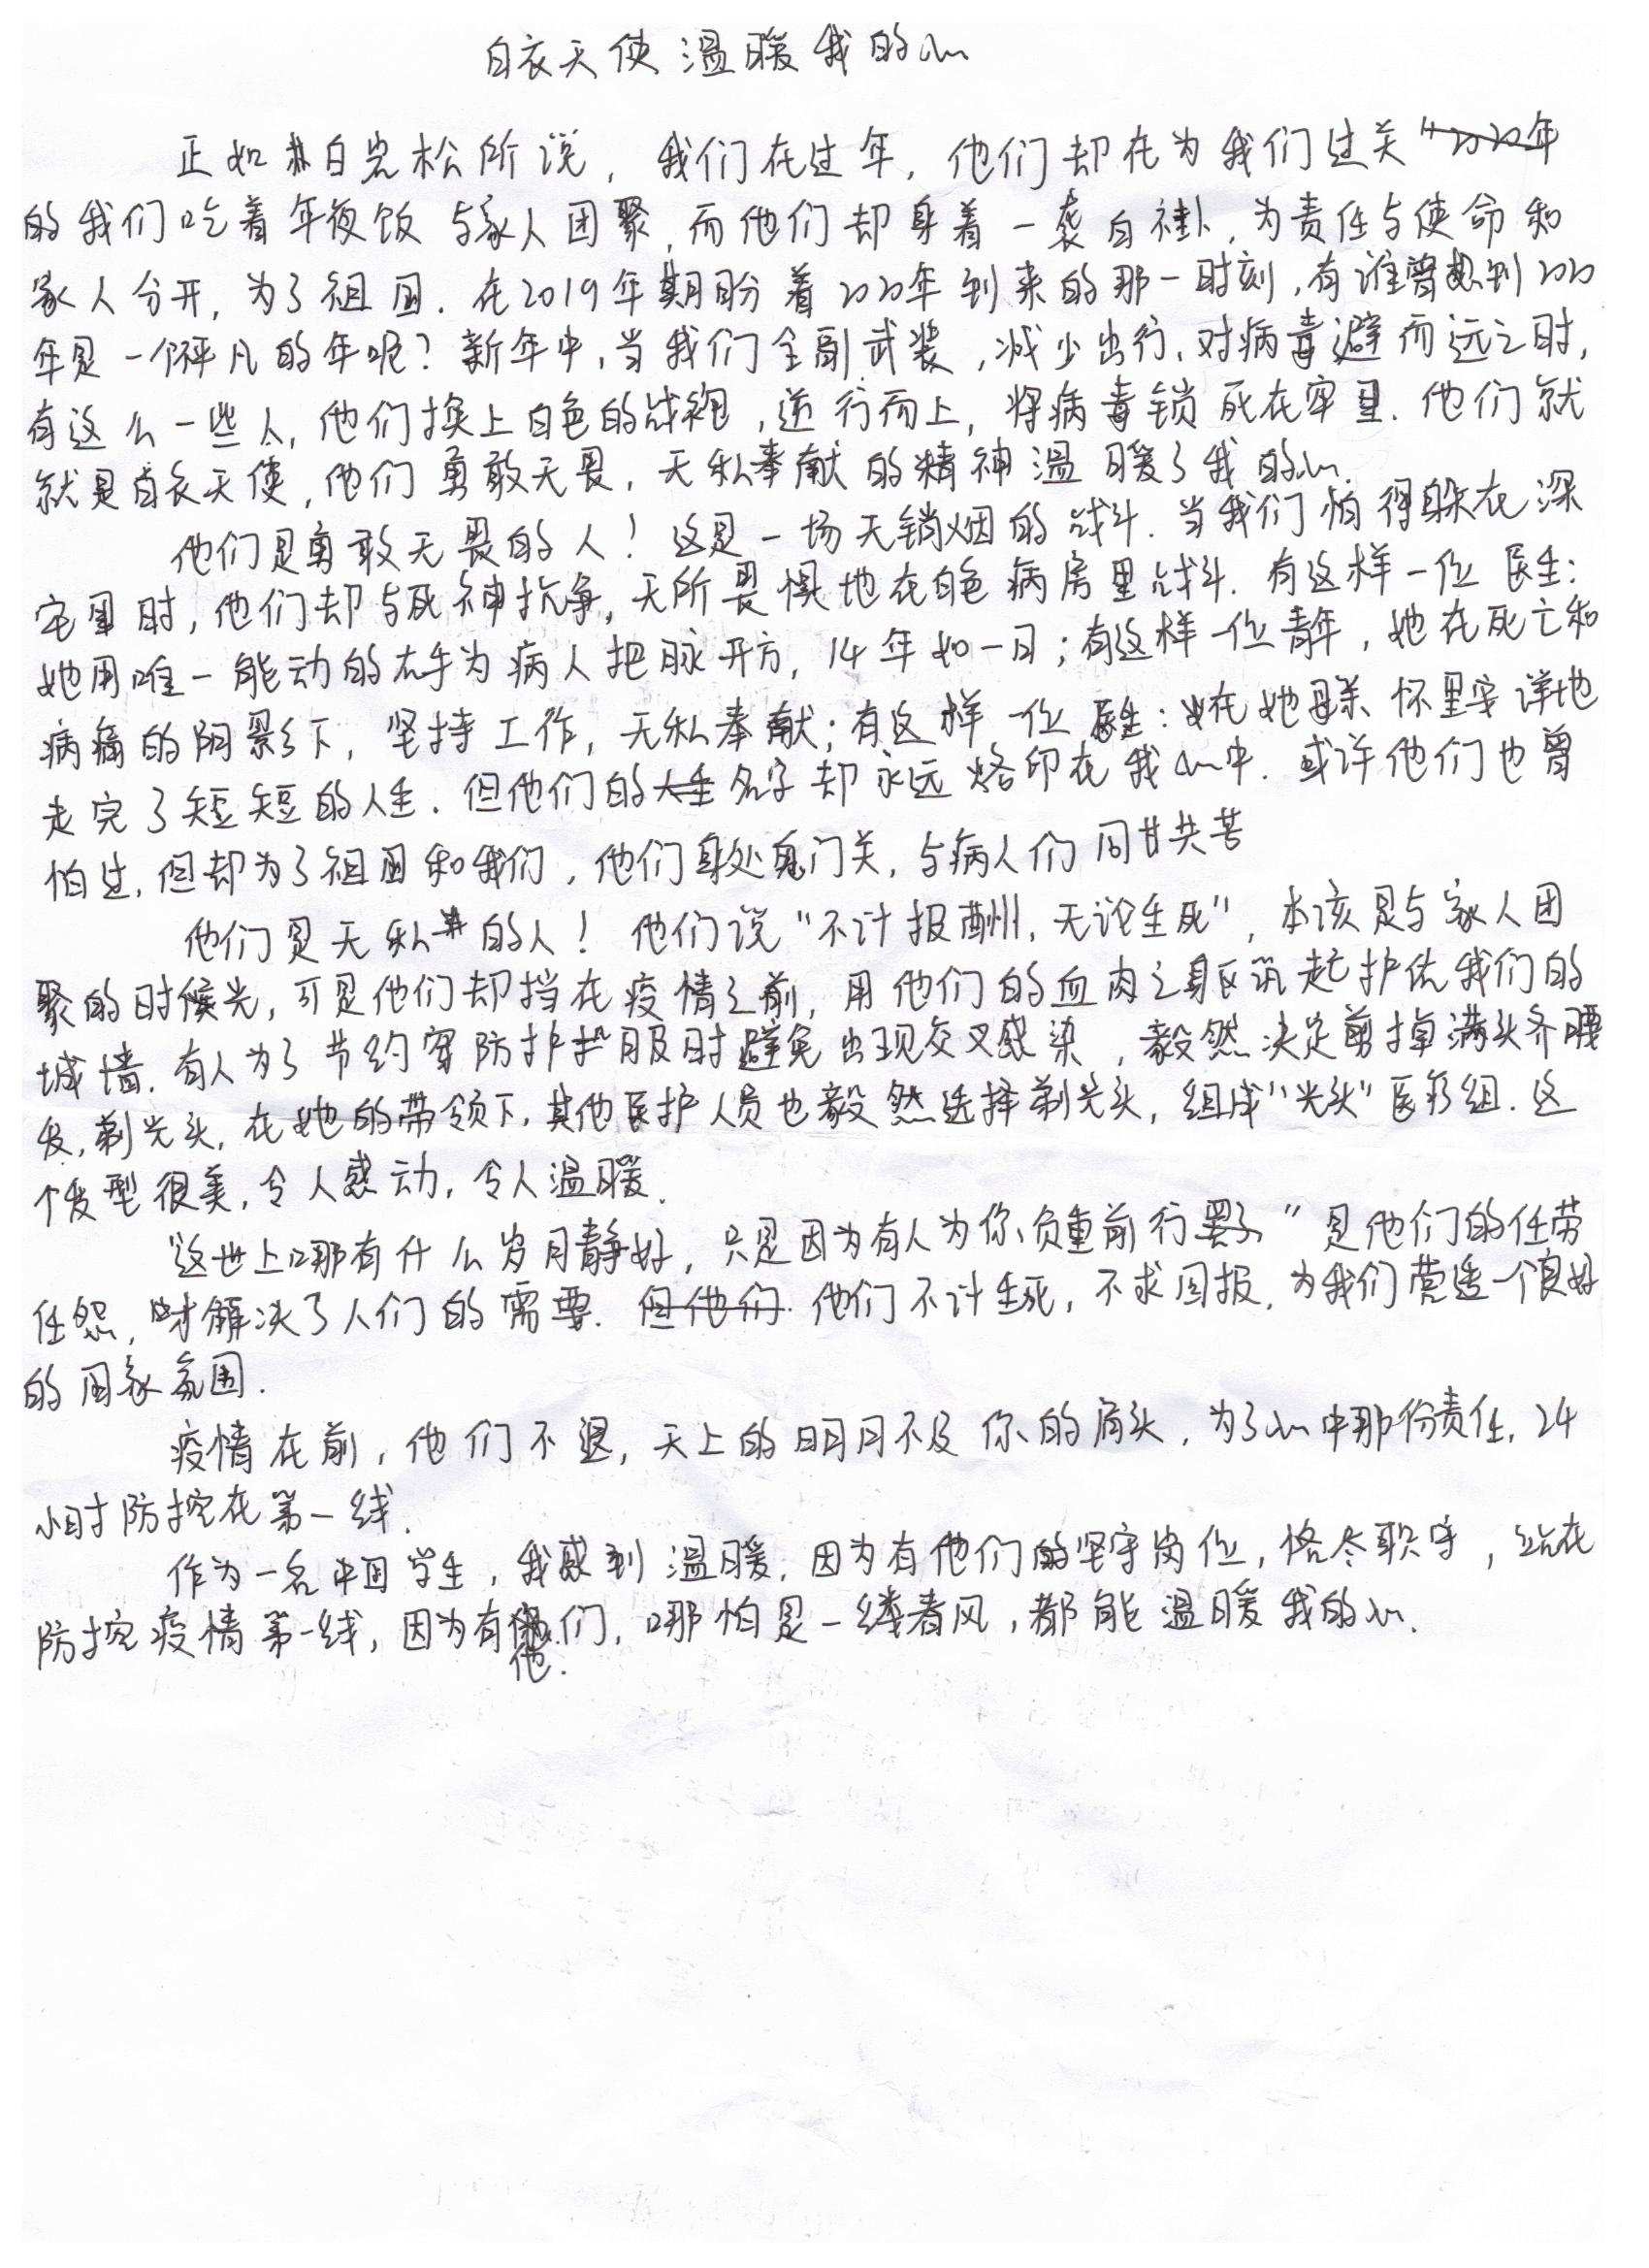 白衣天使温暖我的心
正如白岩松所说，我们在过年，他们却在为我们过关“2020年
的我们吃着年夜饭与家人团聚，而他们却身着一袭白褂，为责任与使命和
家人分开，为了祖国．在2019年期盼着2020年到来的那一时刻，有谁曾想到2020
年是一个不平凡的年呢？新年中，当我们全副武装，减少出行，对病毒避而远之时，
有这么一些人，他们换上白色的战袍，逆行而上，将病毒锁死在牢里．他们就
就是白衣天使，他们勇敢无畏，无私奉献的精神温暖了我的心．
他们是勇敢无畏的人！这是一场无销烟的战斗．当我们怕得躲在深
宅里时，他们却与死神抗争，无所畏惧地在白色病房里战斗．有这样一位医生：
她用唯一能动的右手为病人把脉开方，14年如一日；有这样一位青年，她在死亡和
病痛的阴影下，坚持工作，无私奉献；有这样一位医生：她在她母亲怀里安详地
走完了短短的人生．但他们的名字却永远烙印在我心中．或许他们也曾
怕过，但却为了祖国和我们，他们身处鬼门关，与病人们同甘共苦
他们是无私的人！他们说“不计报酬，无论生死”，本该是与家人团
聚的时候光，可是他们却挡在疫情之前，用他们的血肉之身躯筑起护佑我们的
城墙．有人为了节约穿防护服时避免出现交叉感染，毅然决定剪掉满头齐腰
发，剃光头，在她的带领下，其他医护人员也毅然选择剃光头，组成“光头”医疗组．这
个发型很美，令人感动，令人温暖．
“这世上哪有什么岁月静好，只是因为有人为你负重前行罢了”是他们的任劳
任怨，才解决了人们的需要．他们不计生死，不求回报，为我们营造一个良好
的国家氛围．
疫情在前，他们不退，天上的明月不及你的肩头，为了心中那份责任，24
小时防控在第一线．
作为一名中国学生，我感到温暖，因为有他们的坚守岗位，恪尽职守，站在
防控疫情第一线，因为有他们，哪怕是一缕春风，都能温暖我的心．